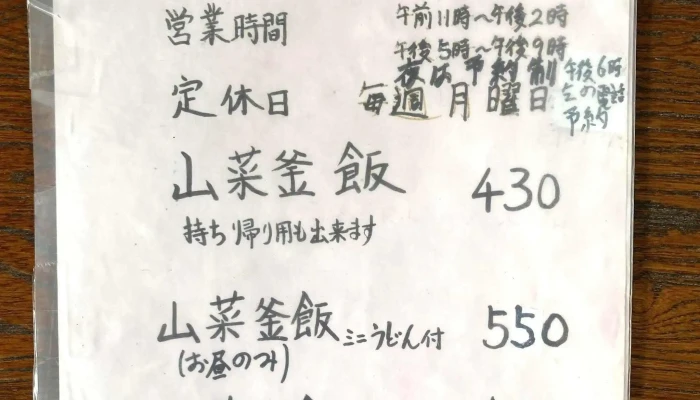 営業時間 午前11時~午後2時
午後5時~午後9時
夜は予約制 午後6時
定休日 毎週月曜日 電話
予約
山菜釜飯 430
持ち帰り用も出来ます
山菜釜飯 ミニうどん付 550
(お昼のみ)